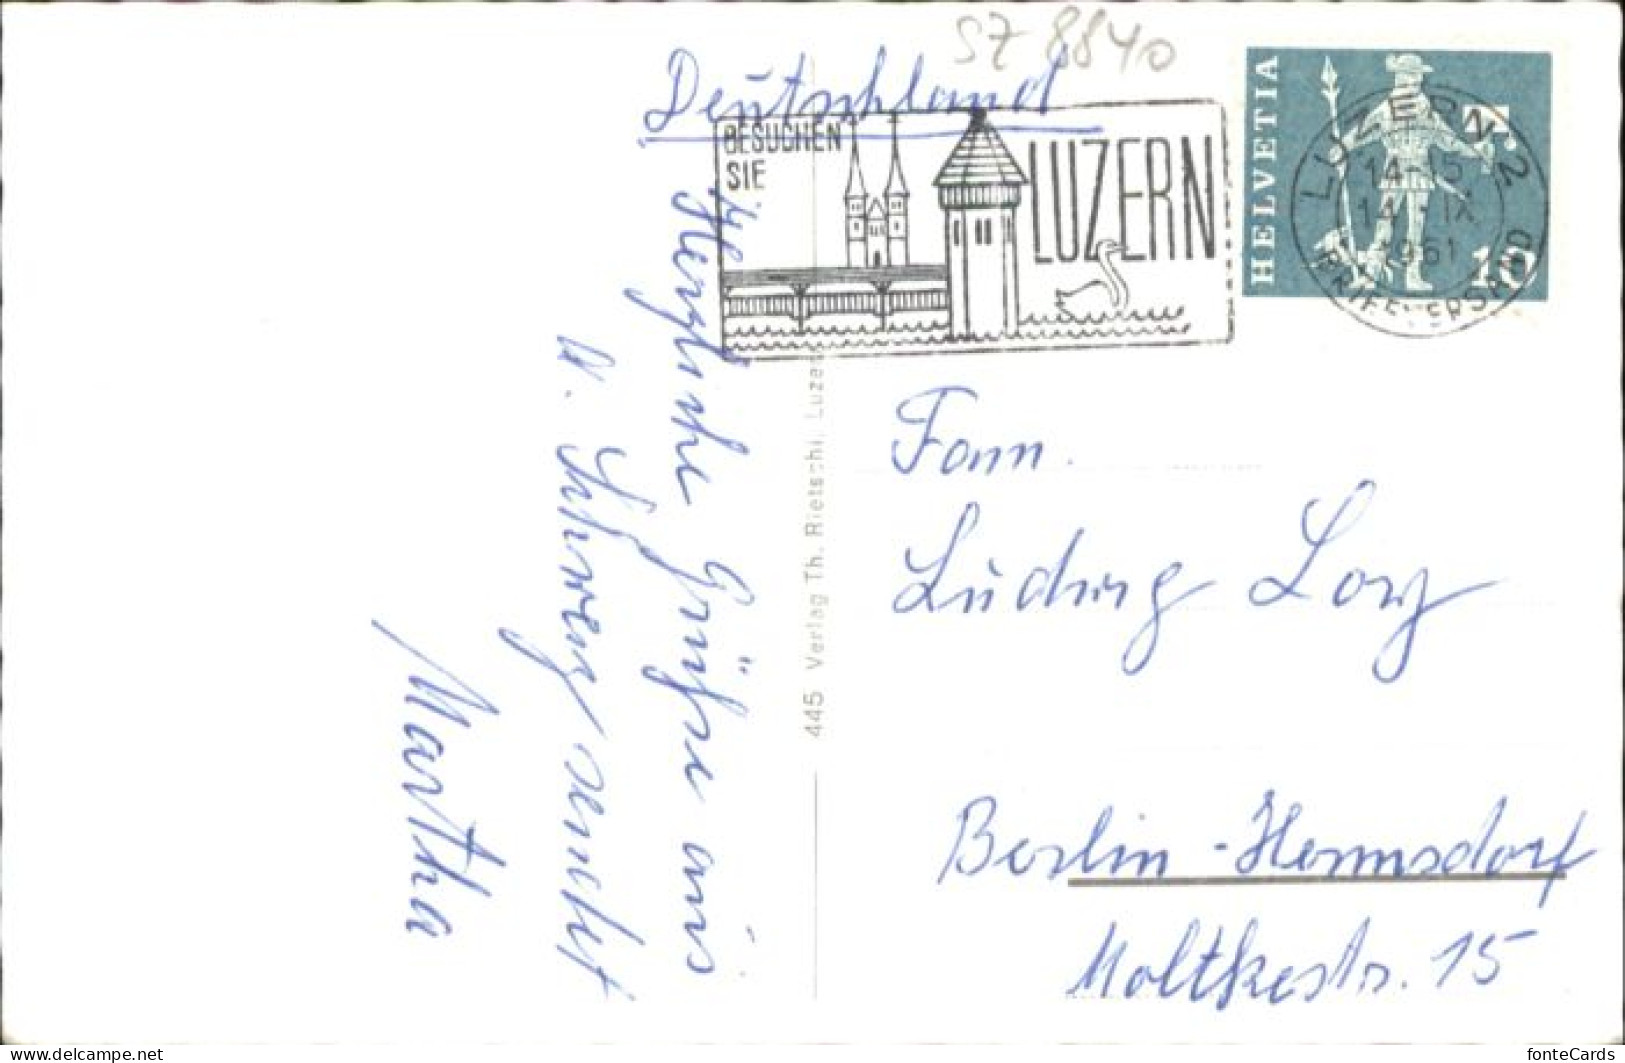 SZ 8840
Deutschland
BESUCHEN
SIE
LUZERN
HELVETIA
10
LUZERN 2
14-15
14. IX
1961
BRIEFVERSAND
Herzliche Grüsse aus
d. Schweiz sendet
Martha
445 Verlag Th. Rietschi, Luzern
Fam.
Ludwig Lory
Berlin-Hermsdorf
Moltkestr. 15
delcampe.net
fonteCards